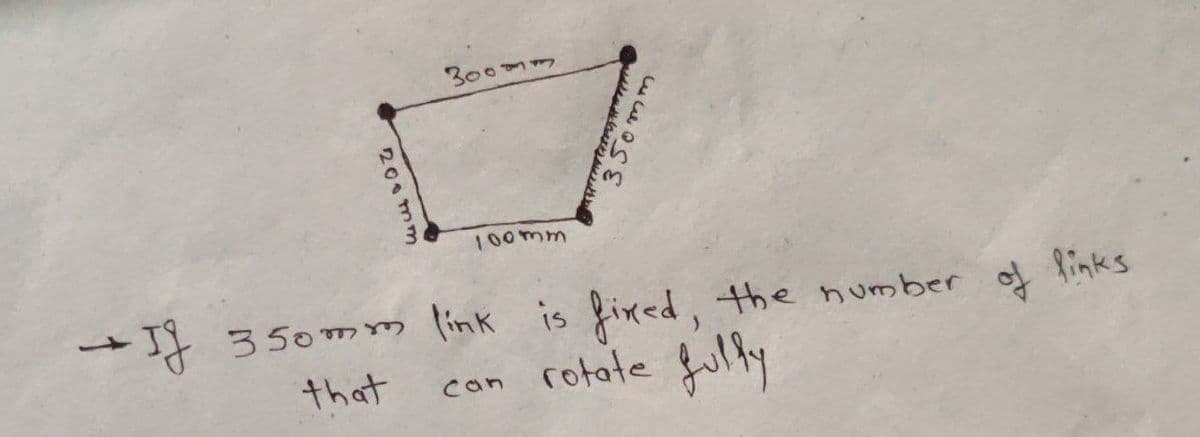 300mm
350mm
200mm
100mm
→ If 350mm link is fixed, the number of links
that can rotate fully